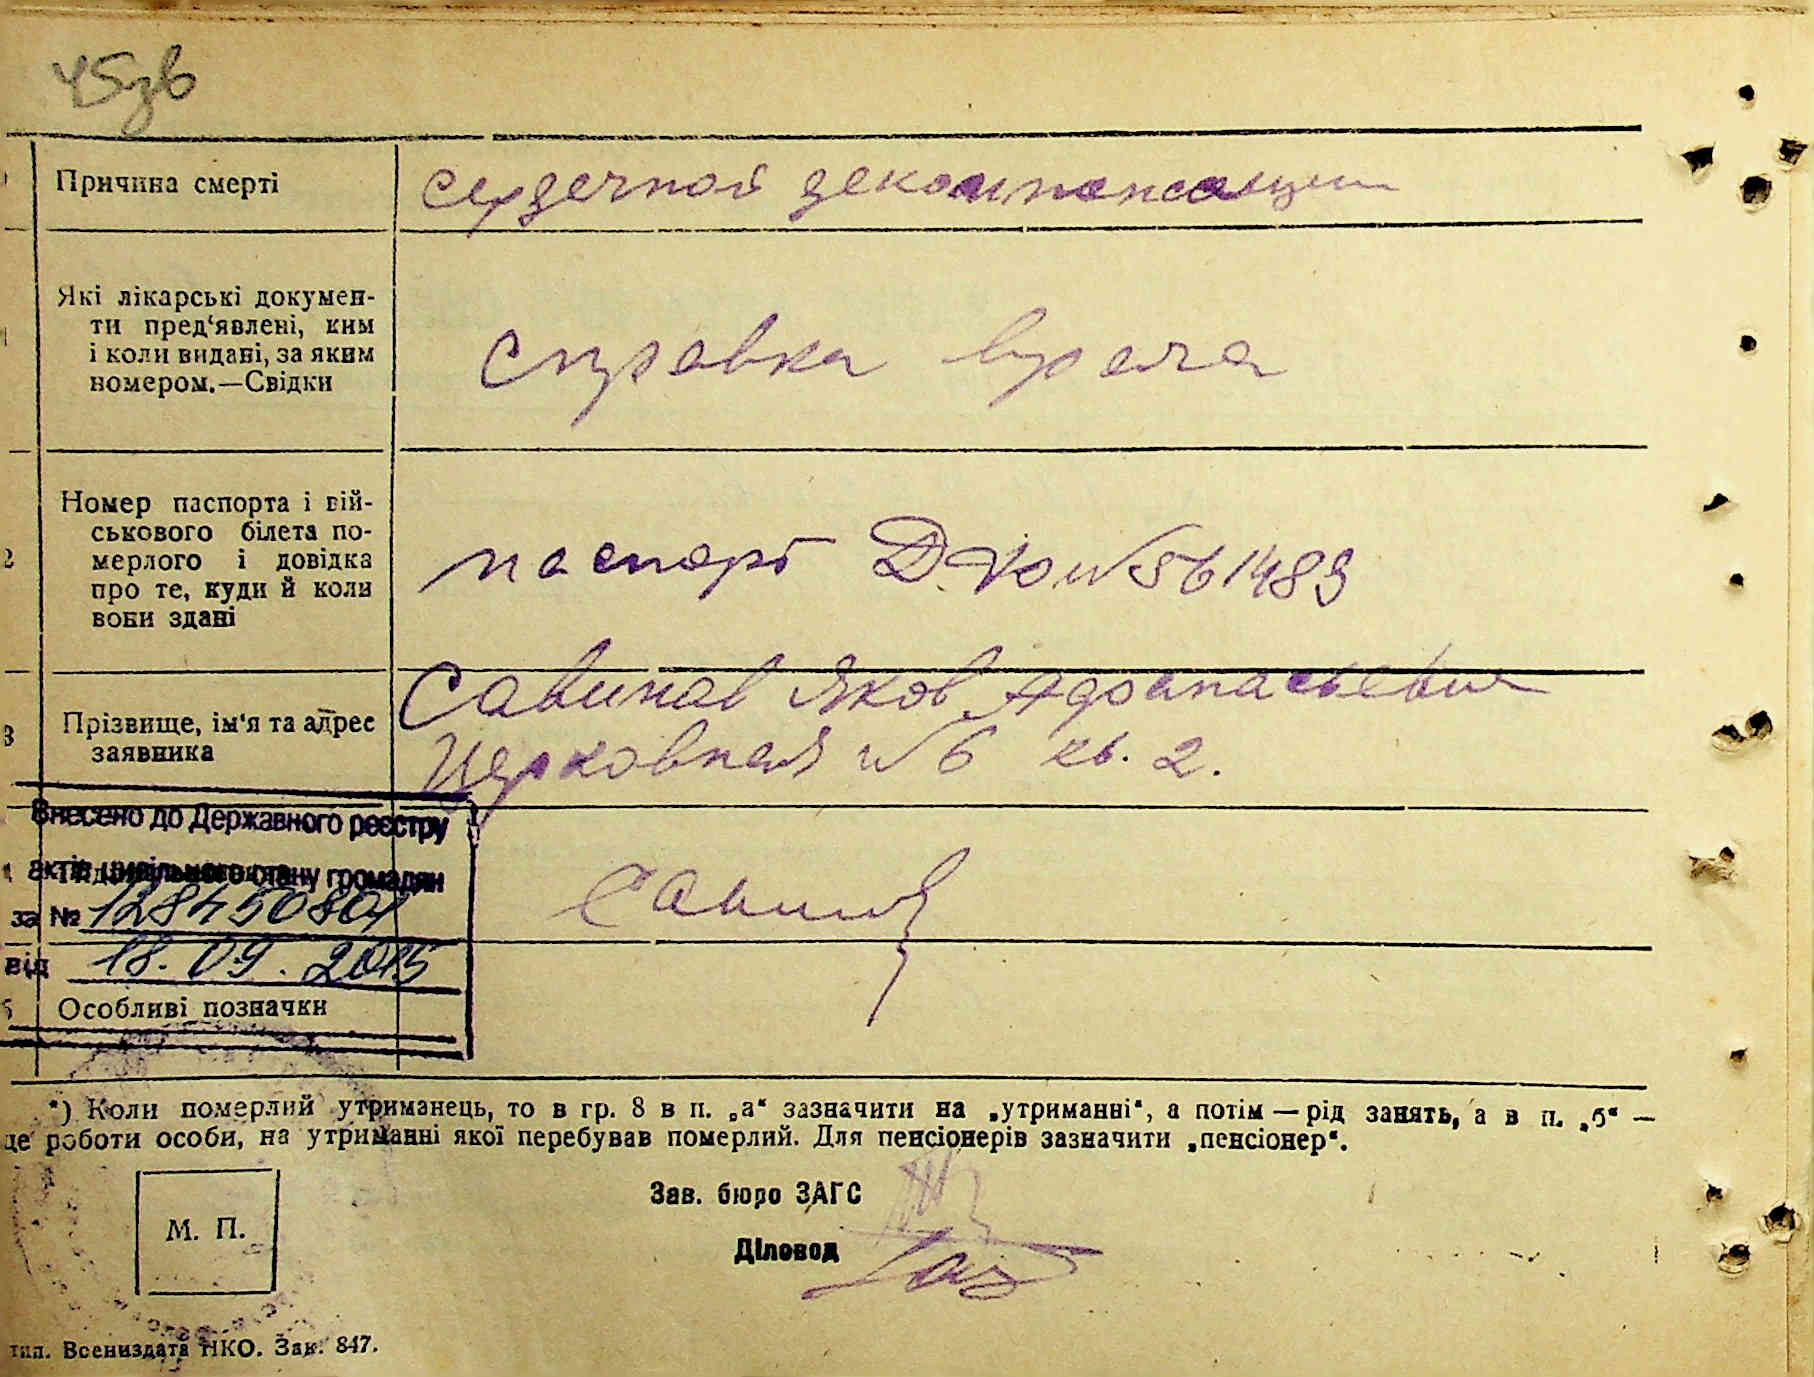 45зв
Причина смерті
сердечной декомпенсации
Які лікарські докумен-
ти пред'явлені, ким
і коли видані, за яким
номером.—Свідки
справка врача
Номер паспорта і вій-
ськового білета по-
мерлого і довідка
про те, куди й коли
вони здані
паспорт №561483
Савинов Яков
Прізвище, ім'я та адрес
заявника
Церковная №6 кв. 2.
Внесено до Державного реєстру
актів цивільного стану громадян
за № 128450801
від 18.09.2015
Особливі позначки
*) Коли померлий утриманець, то в гр. 8 в п. „а“ зазначити на „утриманні“, а потім — рід занять, а в п. „б“ —
це роботи особи, на утриманні якої перебував померлий. Для пенсіонерів зазначити „пенсіонер“.
Зав. бюро ЗАГС
М. П.
Діловод
тип. Всениздата НКО. Зак. 847.